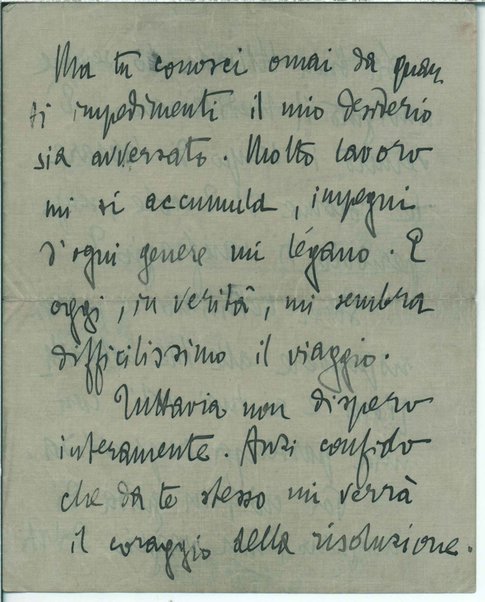 Ma tu conosci omai da quan
ti impedimenti il mio desiderio
sia avversato. Molto lavoro
mi si accumula, impegni
d'ogni genere mi légano. E
oggi, in verità, mi sembra
difficilissimo il viaggio.
Tuttavia non dispero
interamente. Anzi confido
che da te stesso mi verrà
il coraggio della risoluzione.